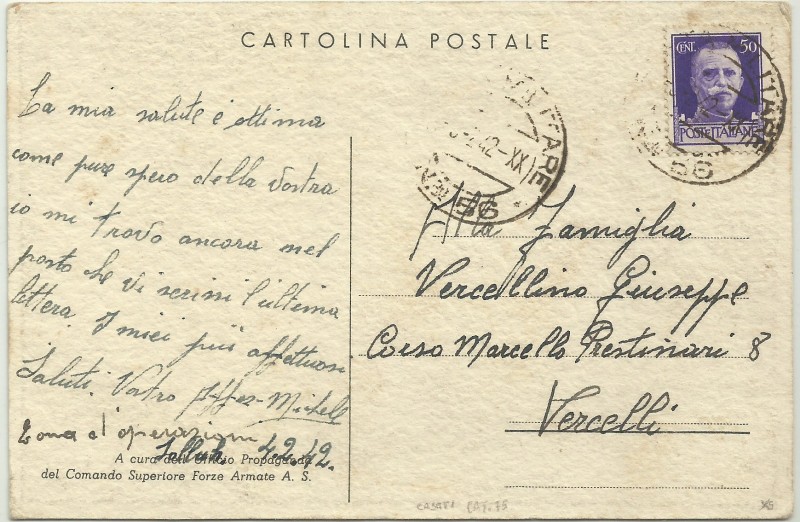 CARTOLINA POSTALE
CENT. 50
POSTE ITALIANE
La mia salute è ottima
come pure spero della vostra
io mi trovo ancora nel
posto che vi scrissi l'ultima
lettera. I miei più affettuosi
Saluti. Vostro Aff
Zona d'operazioni
4.2.42.
A cura dell'Ufficio Propaganda
del Comando Superiore Forze Armate A. S.
42-XX
56
ITARE
56
Alla Famiglia
Vercellino Giuseppe
Corso Marcello Prestinari 8
Vercelli
CASATI CAT. 75